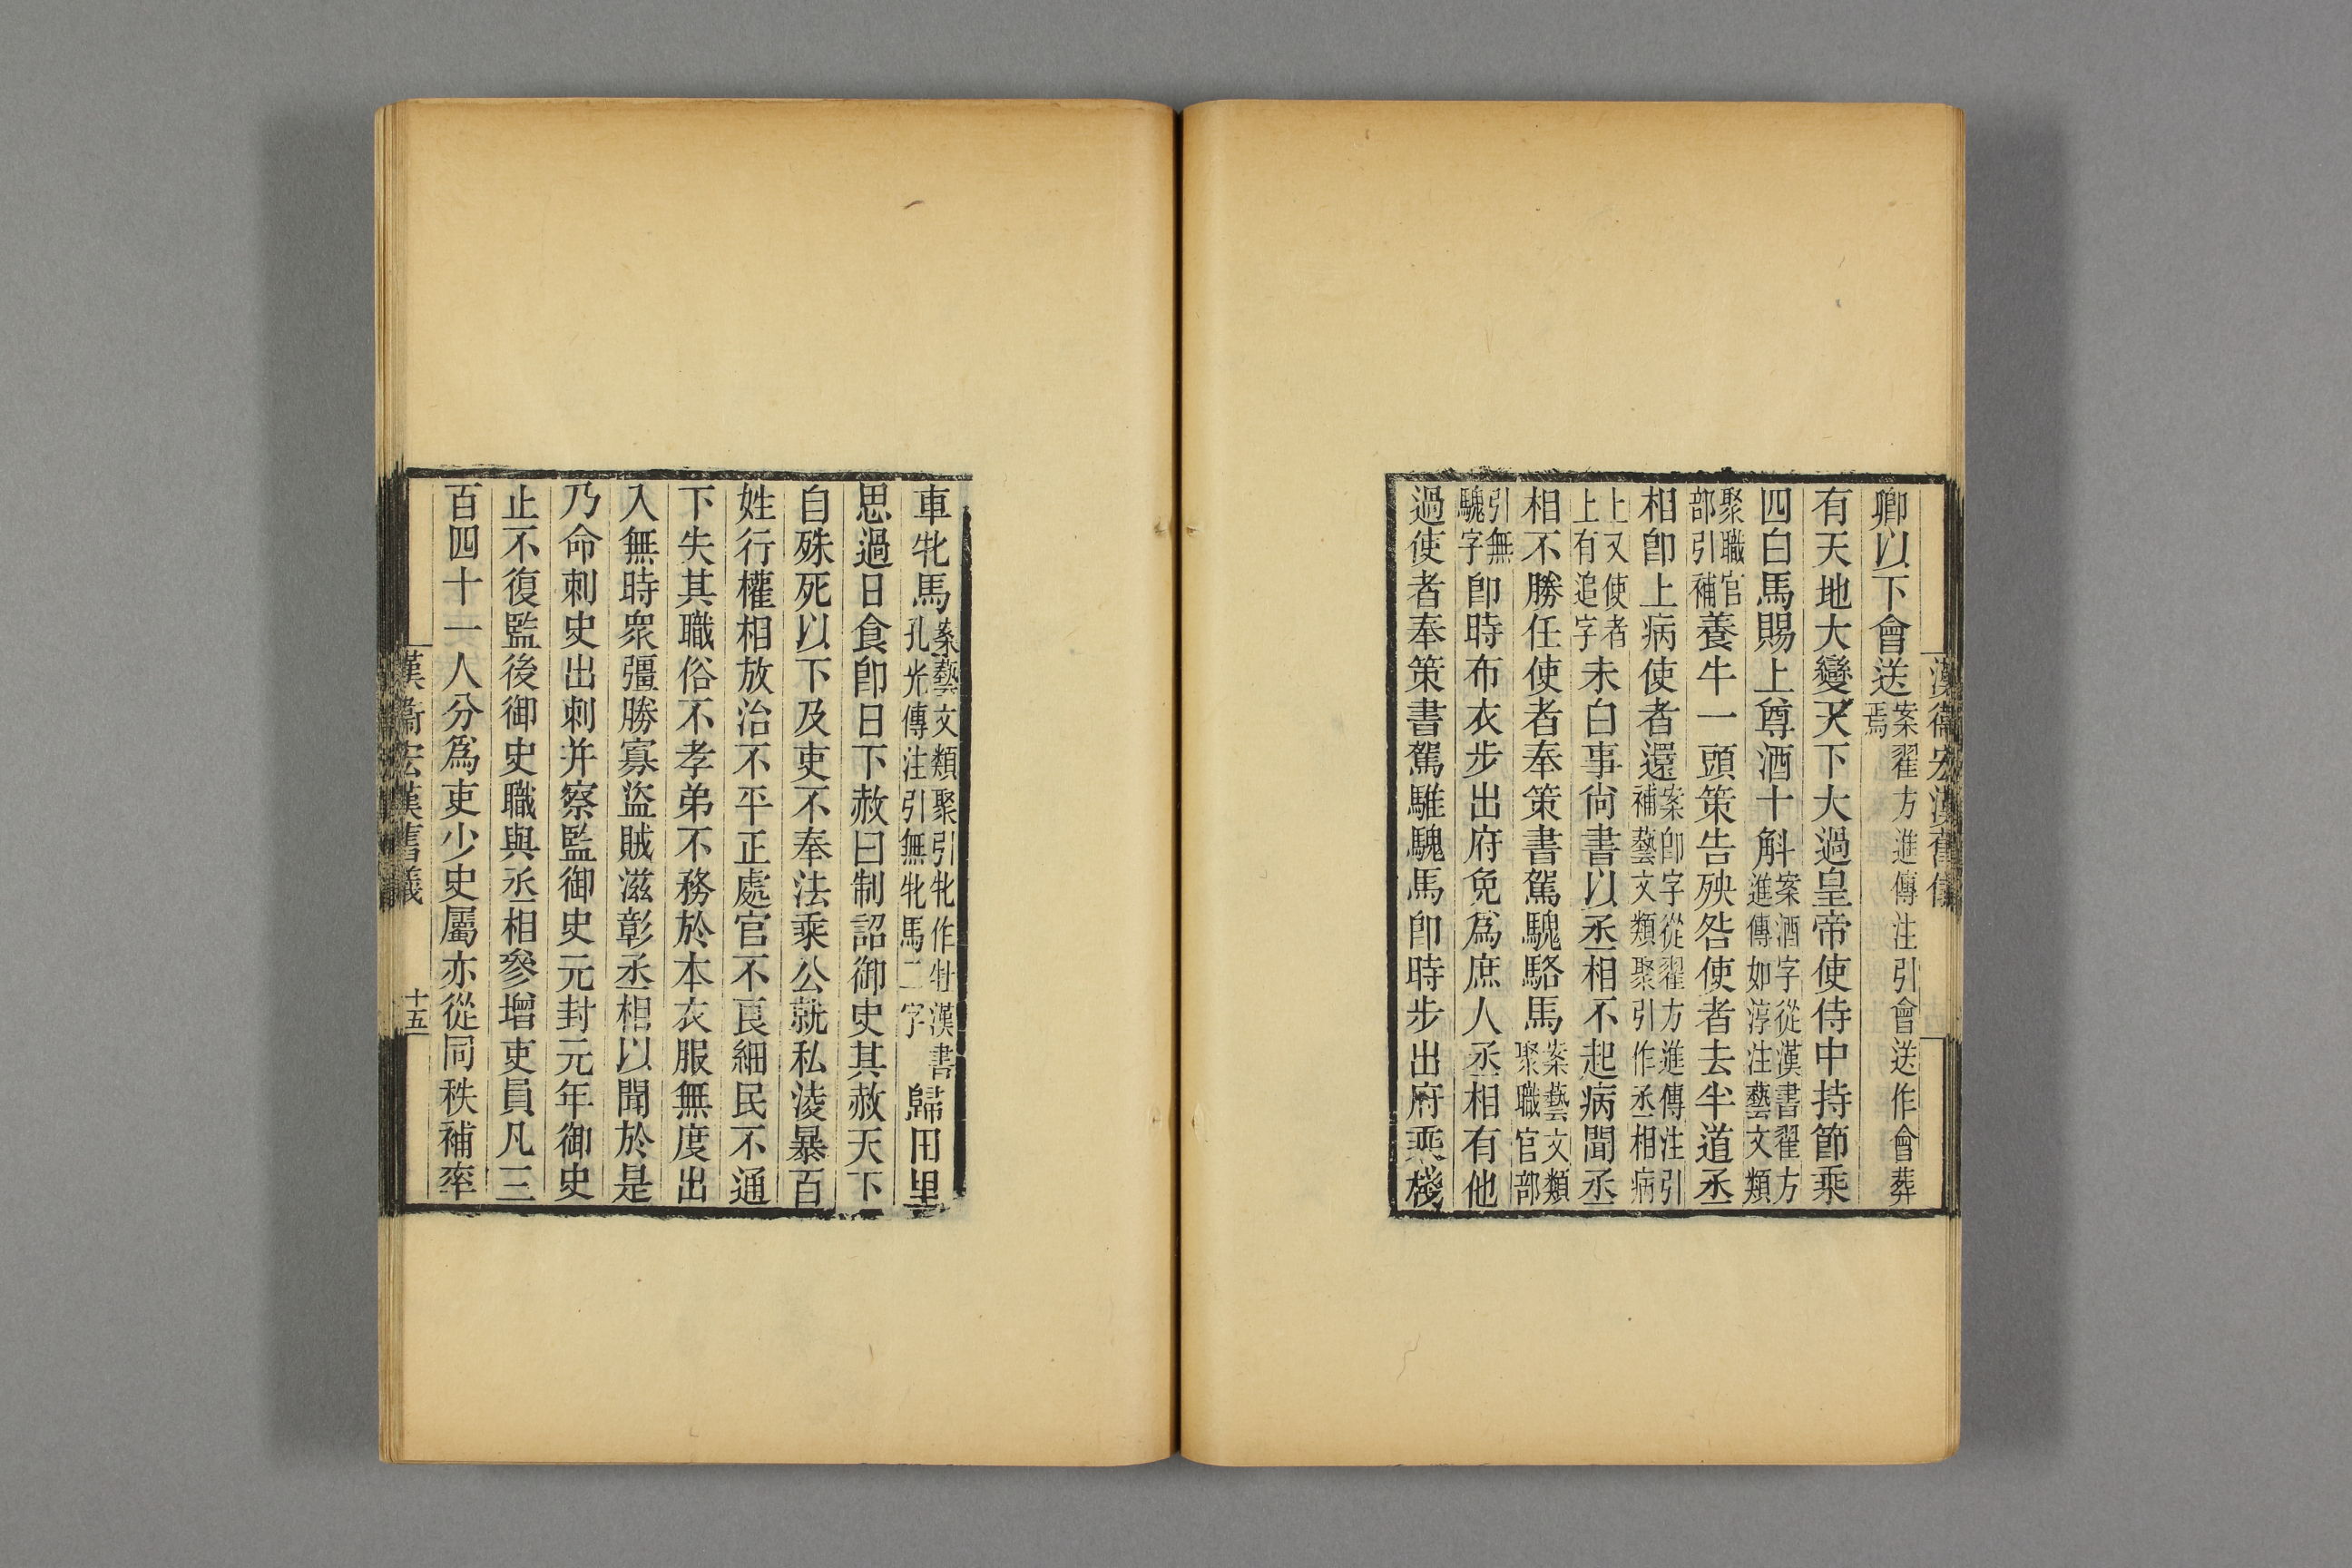 漢衞宏漢舊儀
卿以下會送案翟方進傳注引會送作會葬焉
有天地大變天下大過皇帝使侍中持節乘
四白馬賜上尊酒十斛案酒字從漢書翟方進傳如淳注藝文類
聚職官部引補養牛一頭策告殃咎使者去半道丞
相卽上病使者還案卽字從翟方進傳注引補藝文類聚引作丞相病
上又使者上有追字未白事尙書以丞相不起病聞丞
相不勝任使者奉策書駕騩駱馬案藝文類聚職官部
引無騩字卽時布衣步出府免爲庶人丞相有他
過使者奉策書駕騅騩馬卽時步出府乘棧
車牝馬案藝文類聚引牝作牡漢書孔光傳注引無牝馬二字歸田里
思過日食卽日下赦曰制詔御史其赦天下
自殊死以下及吏不奉法乘公就私淩暴百
姓行權相放治不平正處官不良細民不通
下失其職俗不孝弟不務於本衣服無度出
入無時衆彊勝寡盜賊滋彰丞相以聞於是
乃命刺史出刺并察監御史元封元年御史
止不復監後御史職與丞相參增吏員凡三
百四十一人分爲吏少史屬亦從同秩補率
漢衞宏漢舊儀 十五